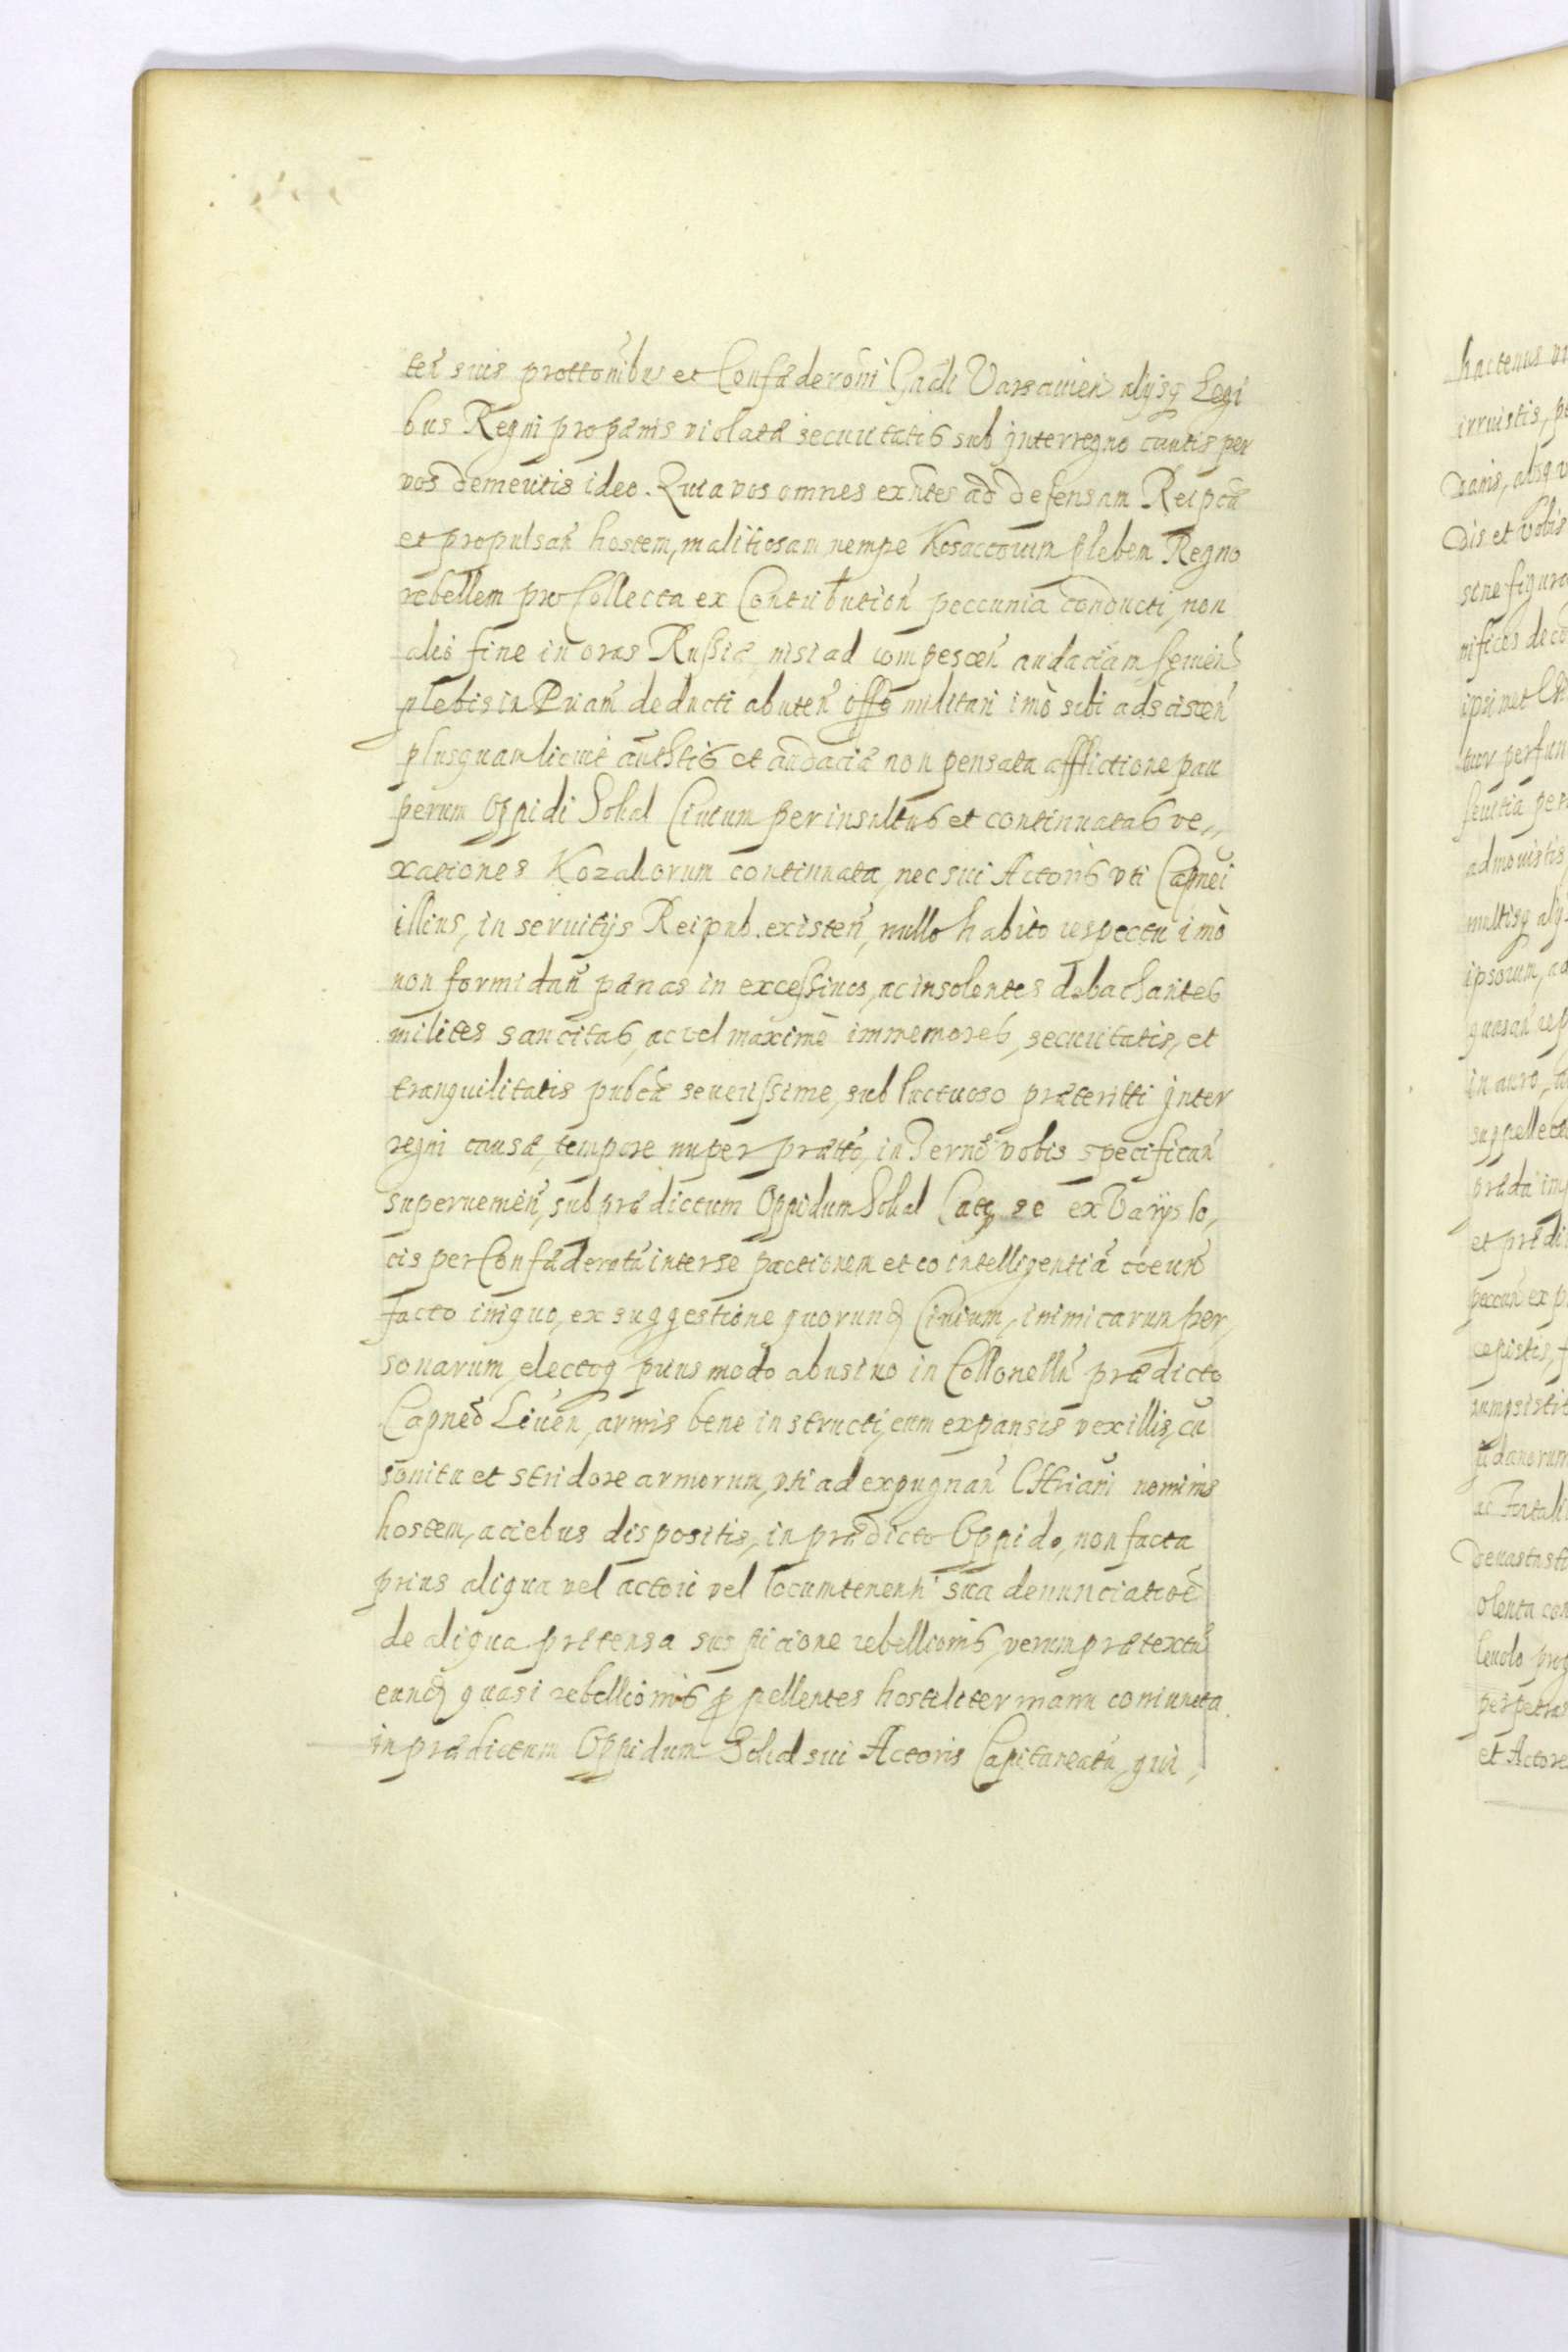 teñ suis prottonibus et Confæderoni Gnali Varsavien alijsq Legi
bus Regni pro pænis violatæ securitatis sub jnterregno cautis per
vos demeritis ideo. Quia vos omnes exñtes ad defensam Reipcæ
et propulsañ hostem, malitiosam nempe Kosaccorum plebem Regno
rebellem pro Collecta ex Contributioñ peccunia conducti, non
alio fine in oras Russiæ, nisi ad compesceñ audaciam servien
plebis in Priam deducti abuteñ offo militari imò sibi adscisceñ
plusquam licuit authtis et audaciæ non pensata afflictione pau
perum Oppidi Sokal Civium per insultus et continuatas ve,,
xationes Kozakorum continuata, nec sui Actoris vti Capnei
illius, in servitijs Reipub. existeñ, nullo habito respectu imò
non formidañ pænas in excessivos, ac insolentes debachantes
milites sancitas, ac vel maximè immemores, securitatis, et
tranquilitatis pubcæ severissime, sub luctuoso præteritti jnter
regni causæ, tempore nuper prætto, in Termo vobis specificañ
supervenieñ, sub prædictum Oppidum Sokal Latq se ex Varijs lo,
cis per Confæderatũ inter se pactionem et cointelligentiã coeuñ
facto iniquo, ex suggestione quorund Civium, inimicarum per,
sonarum, electoq huius modo abusivo in Collonellũ prædicto
Capneo Liven, armis bene instructi, cum expansis vexillis, cũ
sonitu et stridore armorum, vti ad expugnañ Chriani nominis
hostem, aciebus dispositis, in prædicto Oppido, non facta
prius aliqua vel actori vel locumtenenti sua denunciatioe
de aliqua prætensa suspicione rebellionis, verum prætextũ
eund quasi rebellionis ꝓpellentes hostiliter manu coniuncta
in prædictum Oppidum Sokal sui Actoris Capitaneatũ, qui,
hactenus
irruistis,
dis et vobis
sine figura
nifices
ipsi met
tuor
sevitia per
admovistis
multisq
ipsorum, ac
in auro,
suppellect
præda
et prædi
ex
cepistis,
ac
devastast
olenta con
perpetra
et Actore